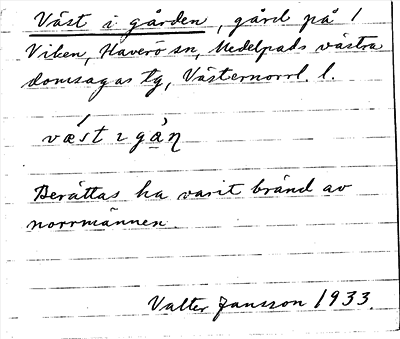 Väst i gården, gård på /
Viken, Haverö sn, Medelpads västra
domsagas tg, Västernorrl. l.
vǽst ı gàn̥
Berättas ha varit bränd av
norrmännen.
Valter Jansson 1933.